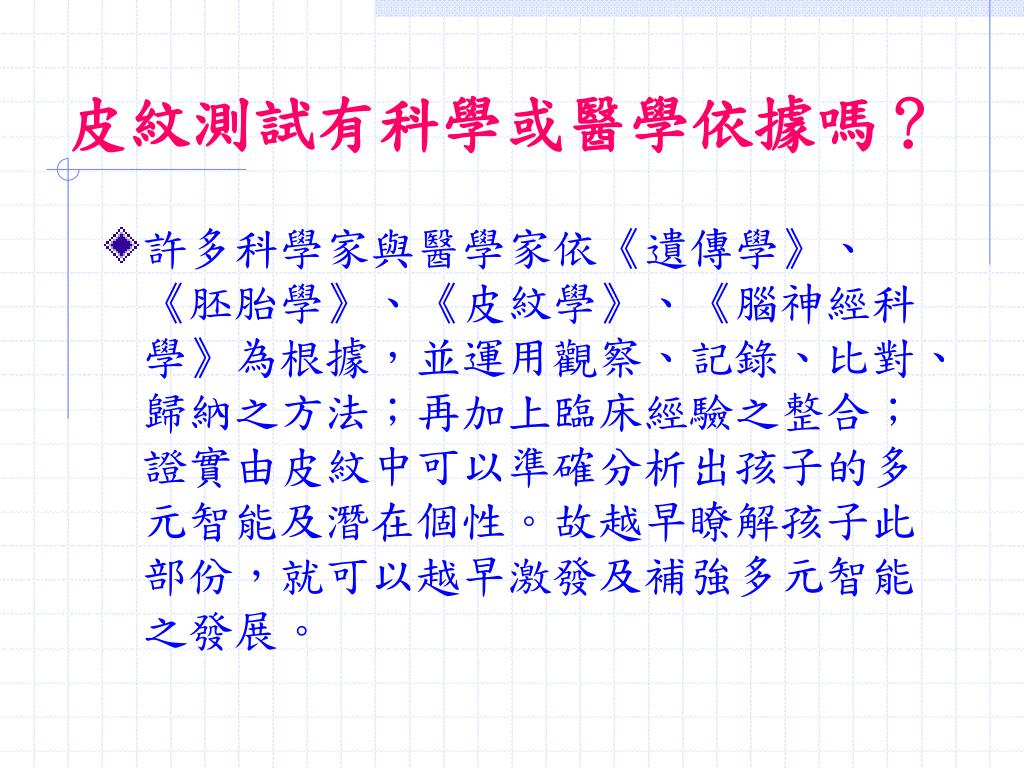 皮紋測試有科學或醫學依據嗎？
許多科學家與醫學家依《遺傳學》、
《胚胎學》、《皮紋學》、《腦神經科
學》為根據，並運用觀察、記錄、比對、
歸納之方法；再加上臨床經驗之整合；
證實由皮紋中可以準確分析出孩子的多
元智能及潛在個性。故越早瞭解孩子此
部份，就可以越早激發及補強多元智能
之發展。